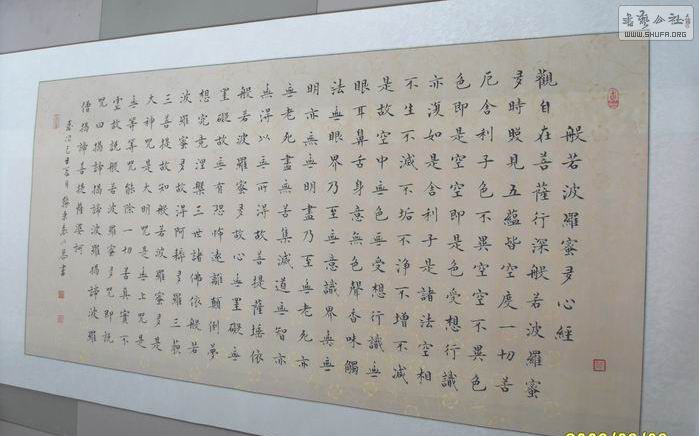 般若波羅蜜多心經
觀自在菩薩行深般若波羅蜜
多時照見五蘊皆空度一切苦
厄舍利子色不異空空不異色
色即是空空即是色受想行識
亦復如是舍利子是諸法空相
不生不滅不垢不淨不增不減
是故空中無色無受想行識無
眼耳鼻舌身意無色聲香味觸
法無眼界乃至無意識界無無
明亦無無明盡乃至無老死亦
無老死盡無苦集滅道無智亦
無得以無所得故菩提薩埵依
般若波羅蜜多故心無罣礙無
罣礙故無有恐怖遠離顛倒夢
想究竟涅槃三世諸佛依般若
波羅蜜多故得阿耨多羅三藐
三菩提故知般若波羅蜜多是
大神咒是大明咒是無上咒是
無等等咒能除一切苦真實不
虛故說般若波羅蜜多咒即說
咒曰揭諦揭諦波羅揭諦波羅
僧揭諦菩提薩婆訶
己丑 書
书艺公社
WWW.SHUFA.ORG